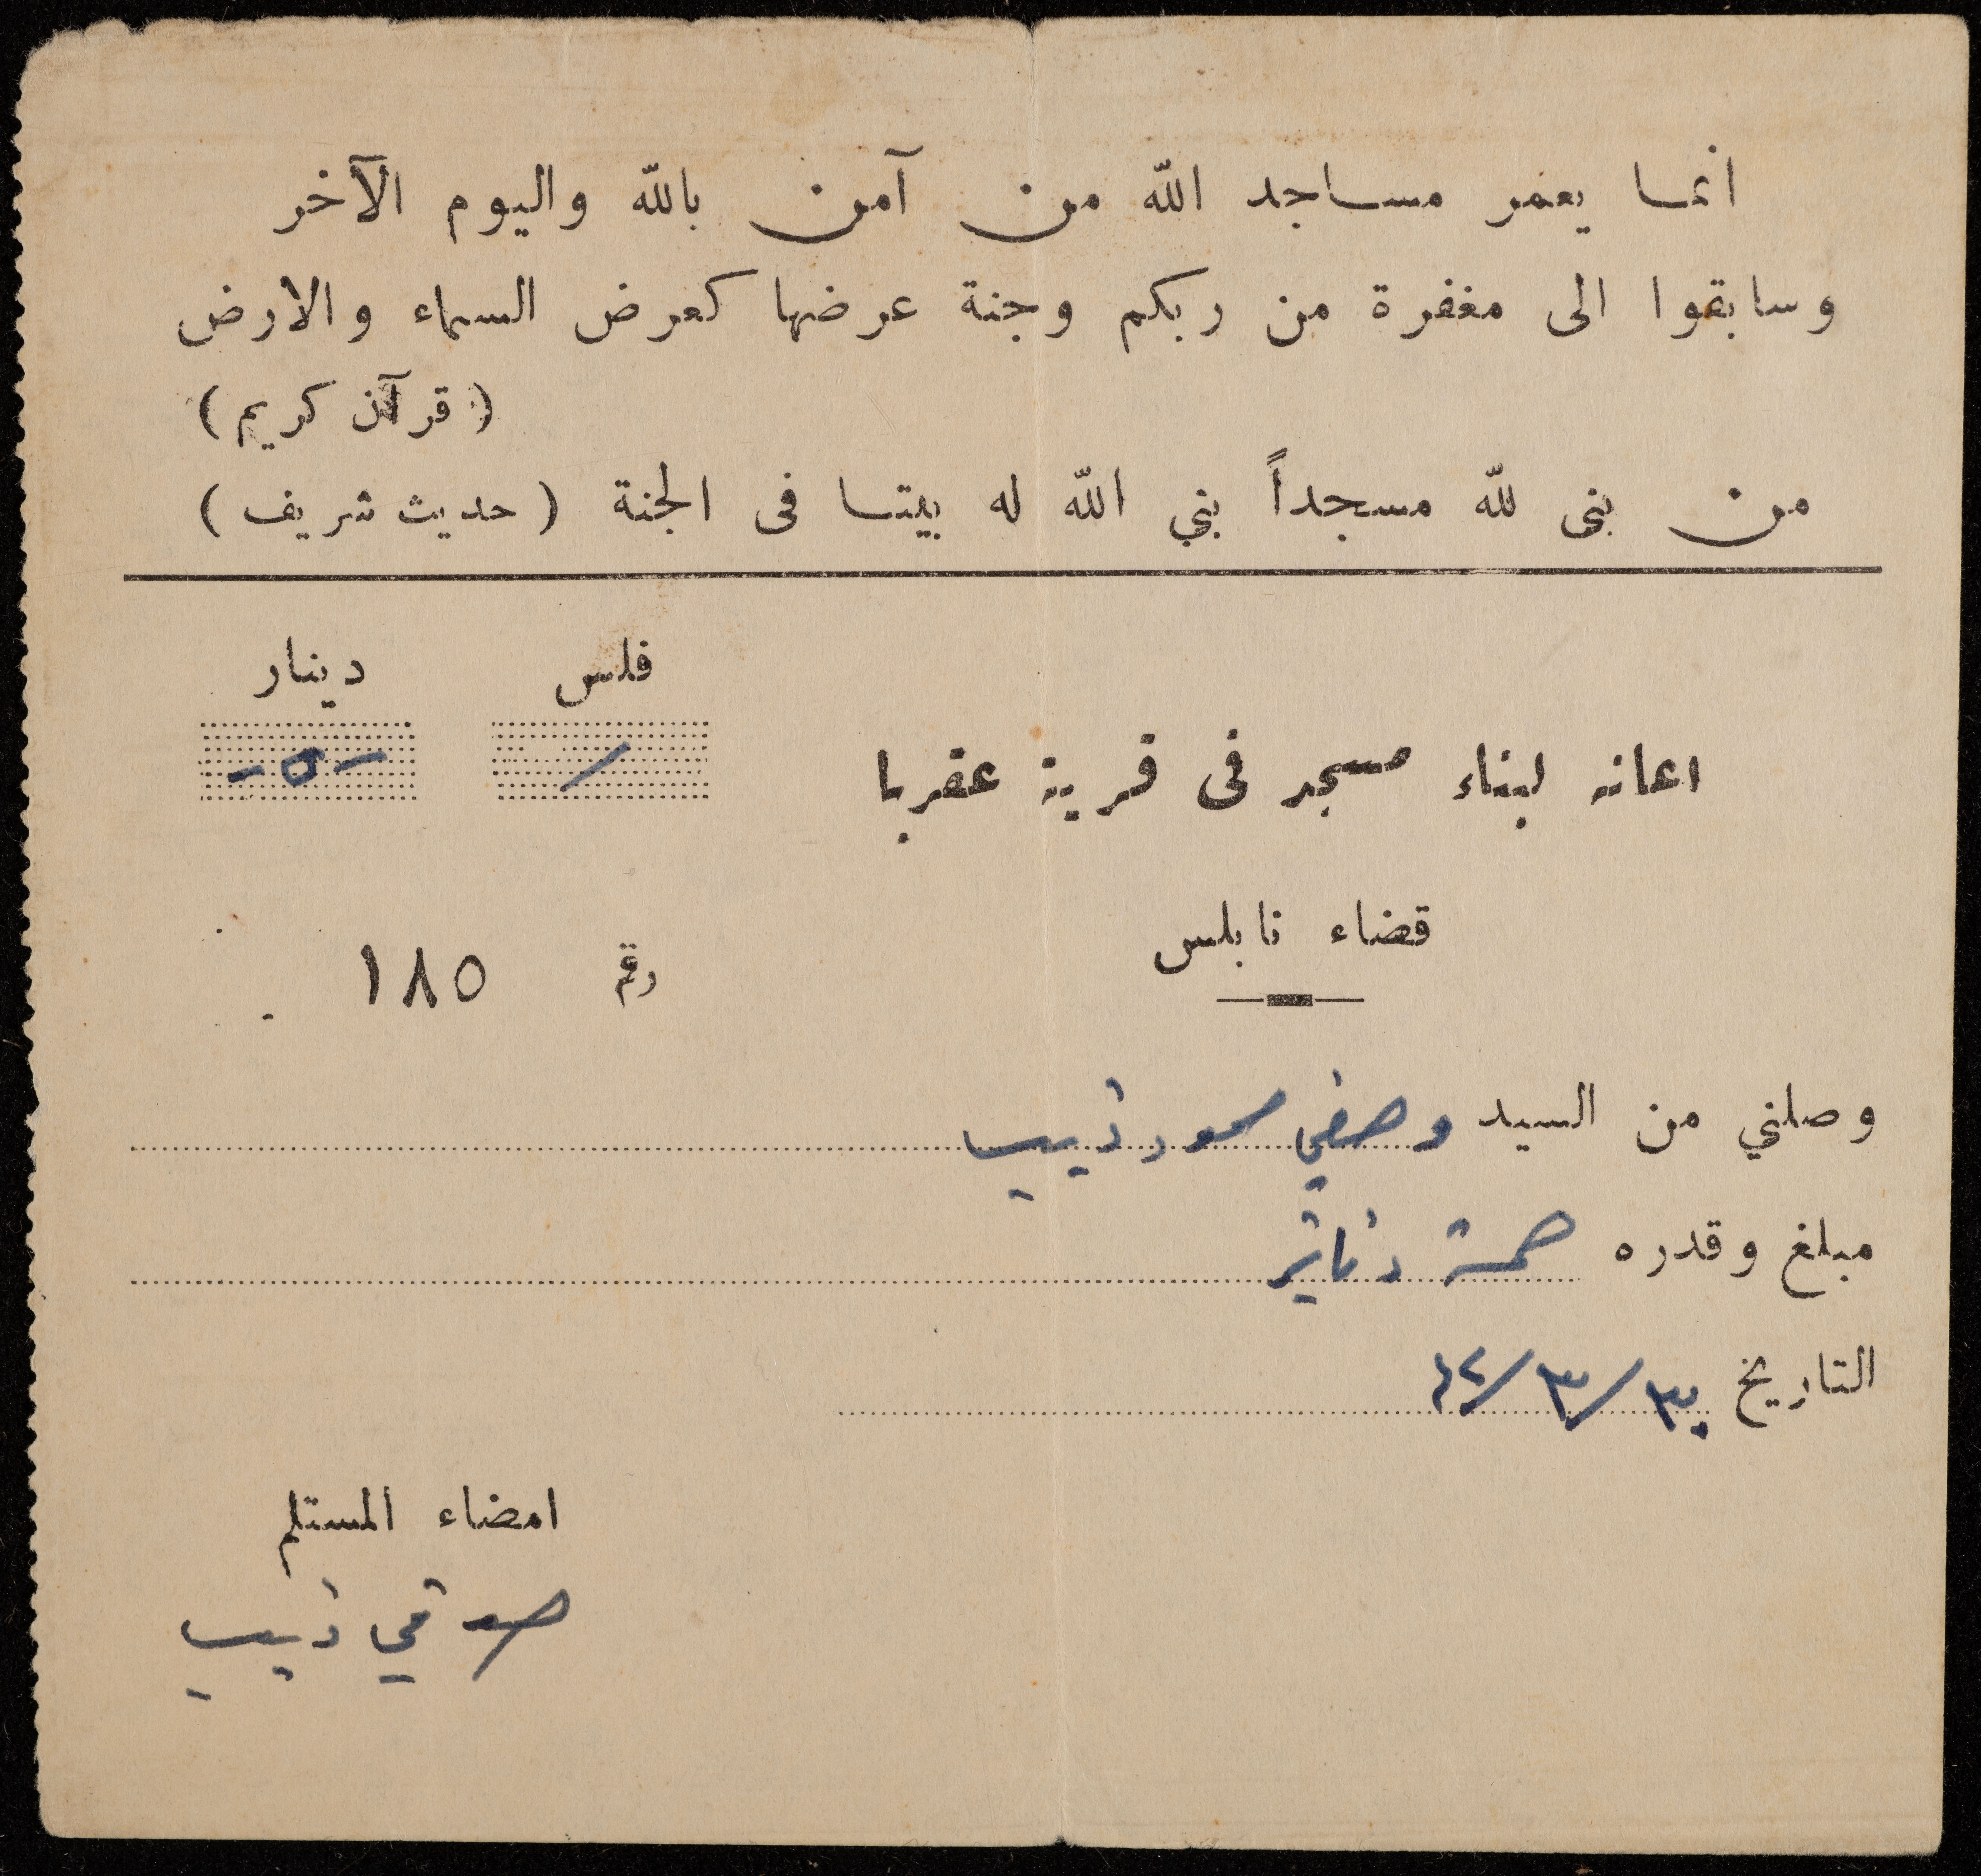 انما يعمر مساجد الله من آمن بالله واليوم الآخر
وسابقوا الى مغفرة من ربكم وجنة عرضها كعرض السماء والارض
(قرآن كريم)
من بنى لله مسجداً بني الله له بيتا فى الجنة (حديث شريف)
فلس دينار
اعانه لبناء مسجد فى قرية عقربا / -٥-
قضاء نابلس
رقم ١٨٥
وصلني من السيد وصفي محمود ذيب
مبلغ وقدره خمسة دنانير
التاريخ ٣٠/٣/
امضاء المستلم
صدقي ذيب